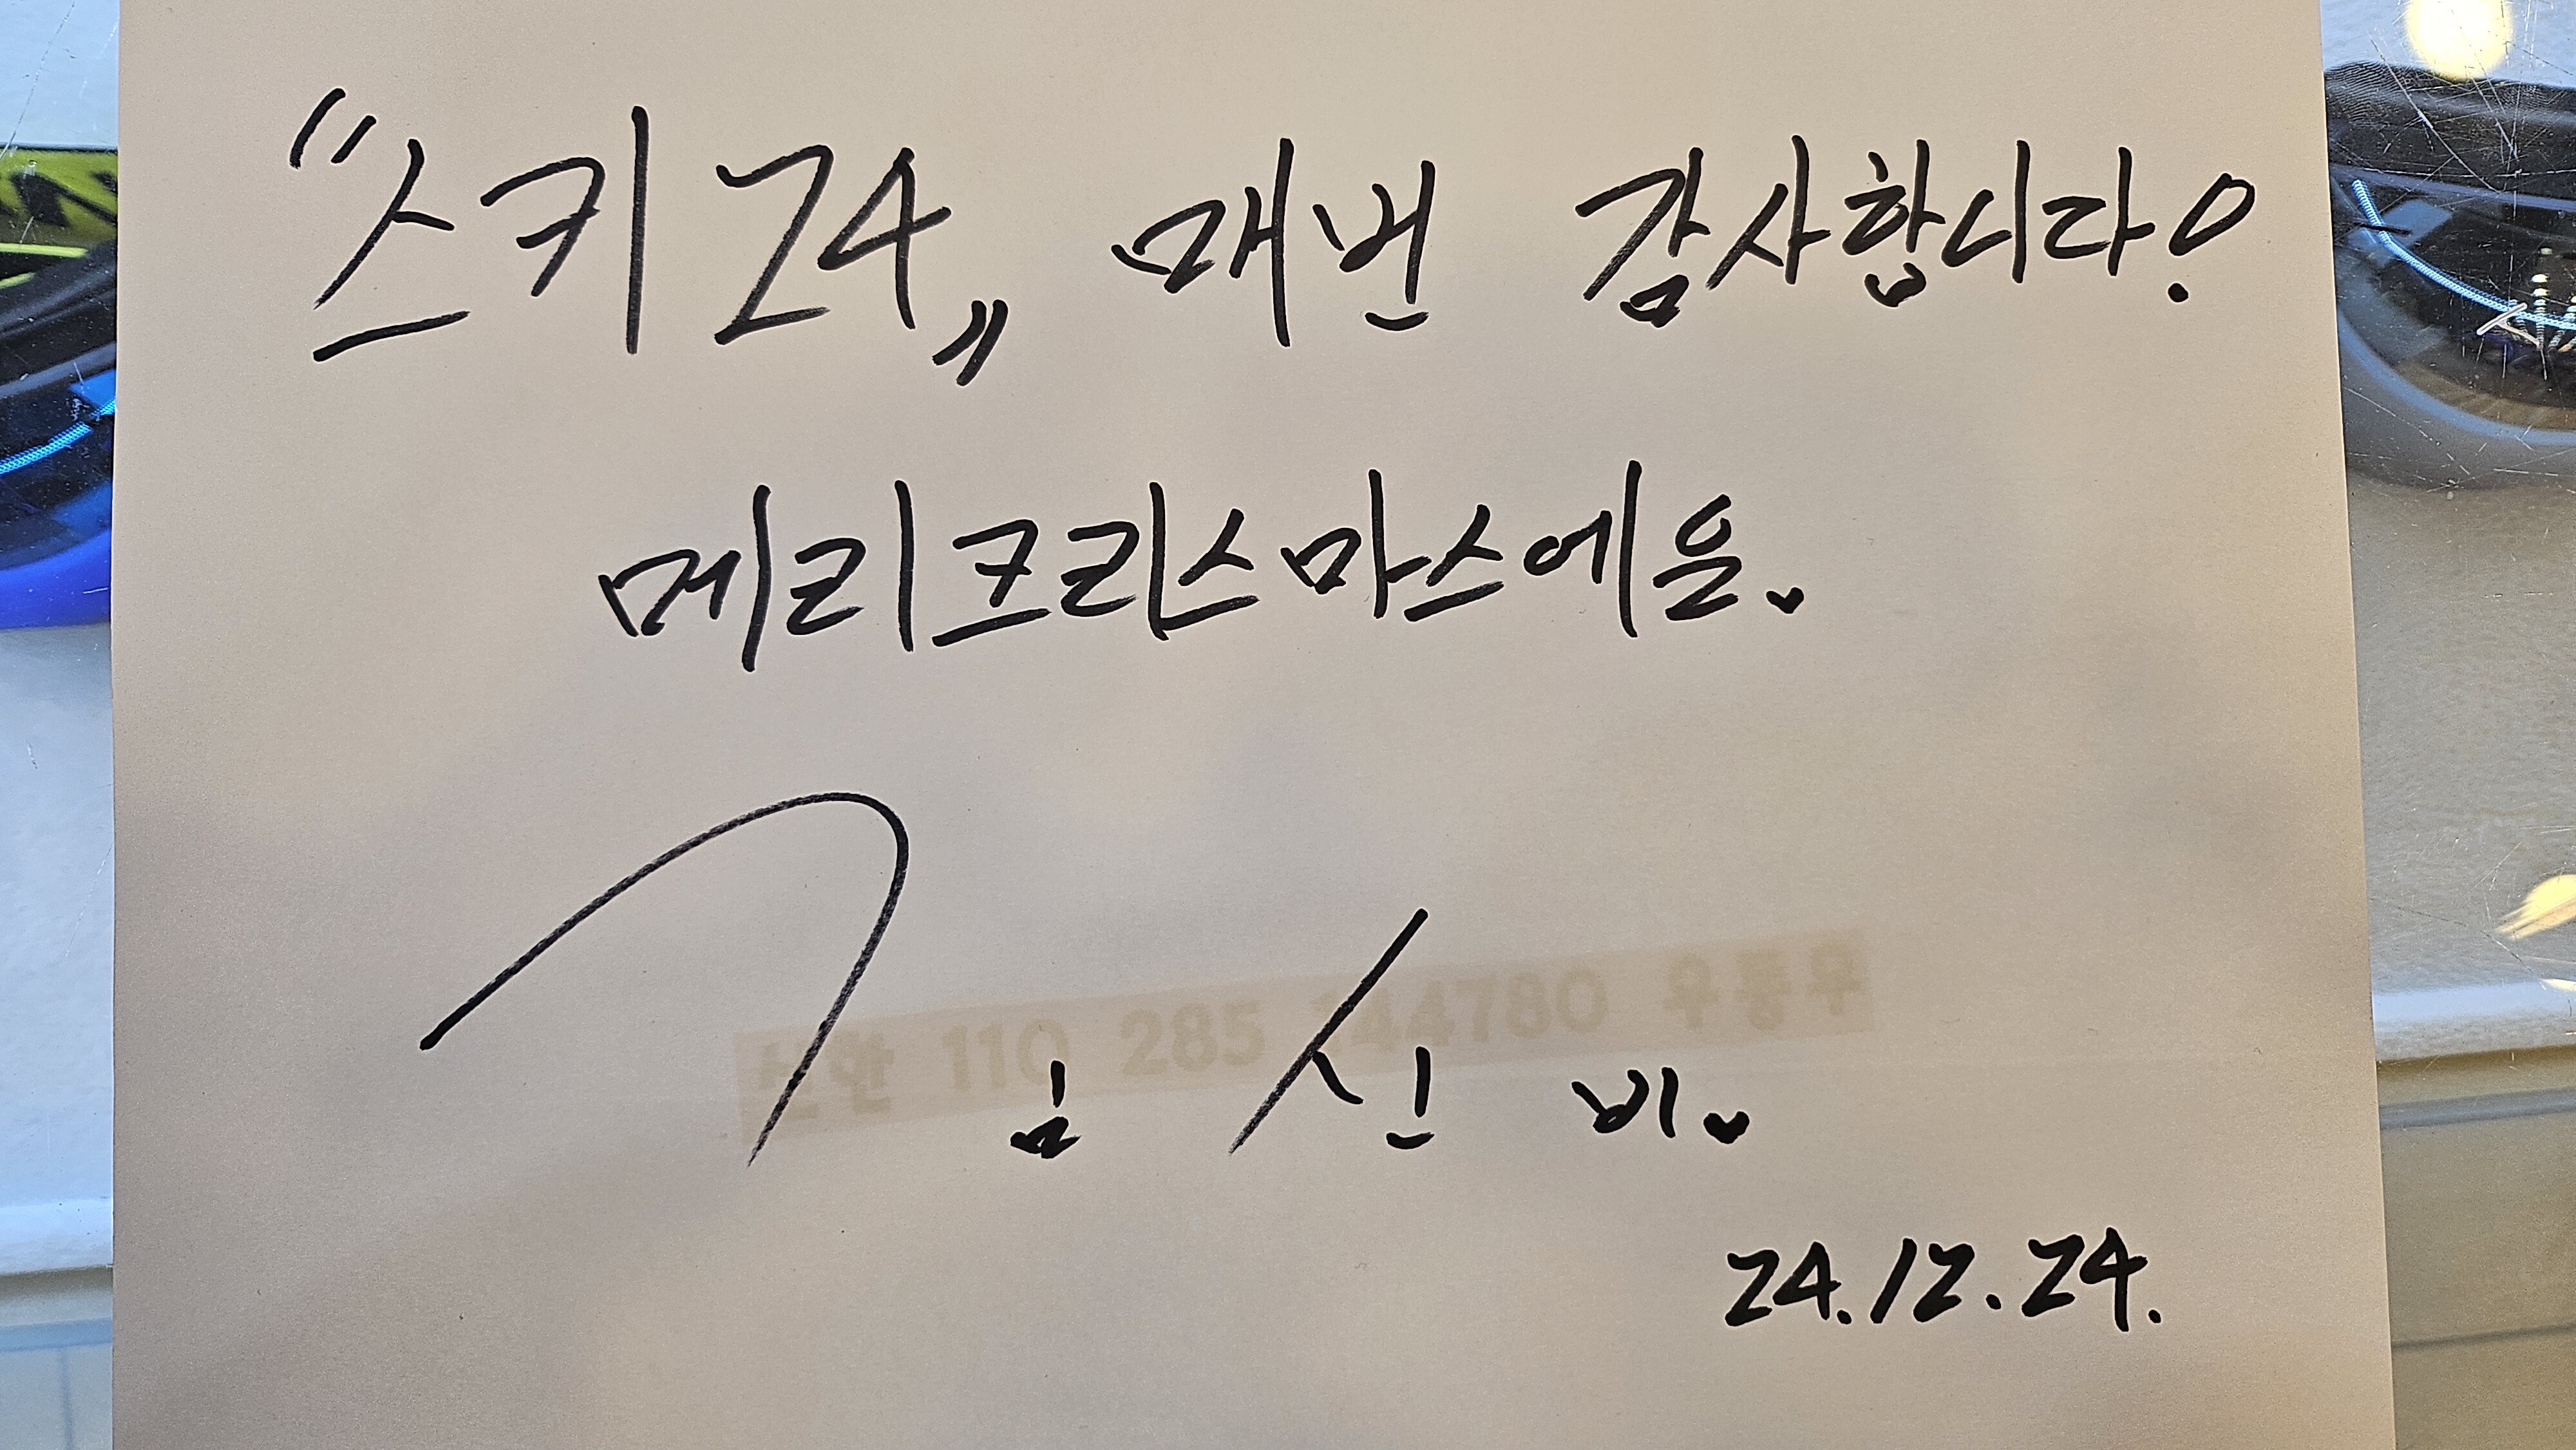 "스키 24" 매번 감사합니다!
메리크리스마스에요.
신한 110 285 144780 우종우
김 신 비.
24.12.24.